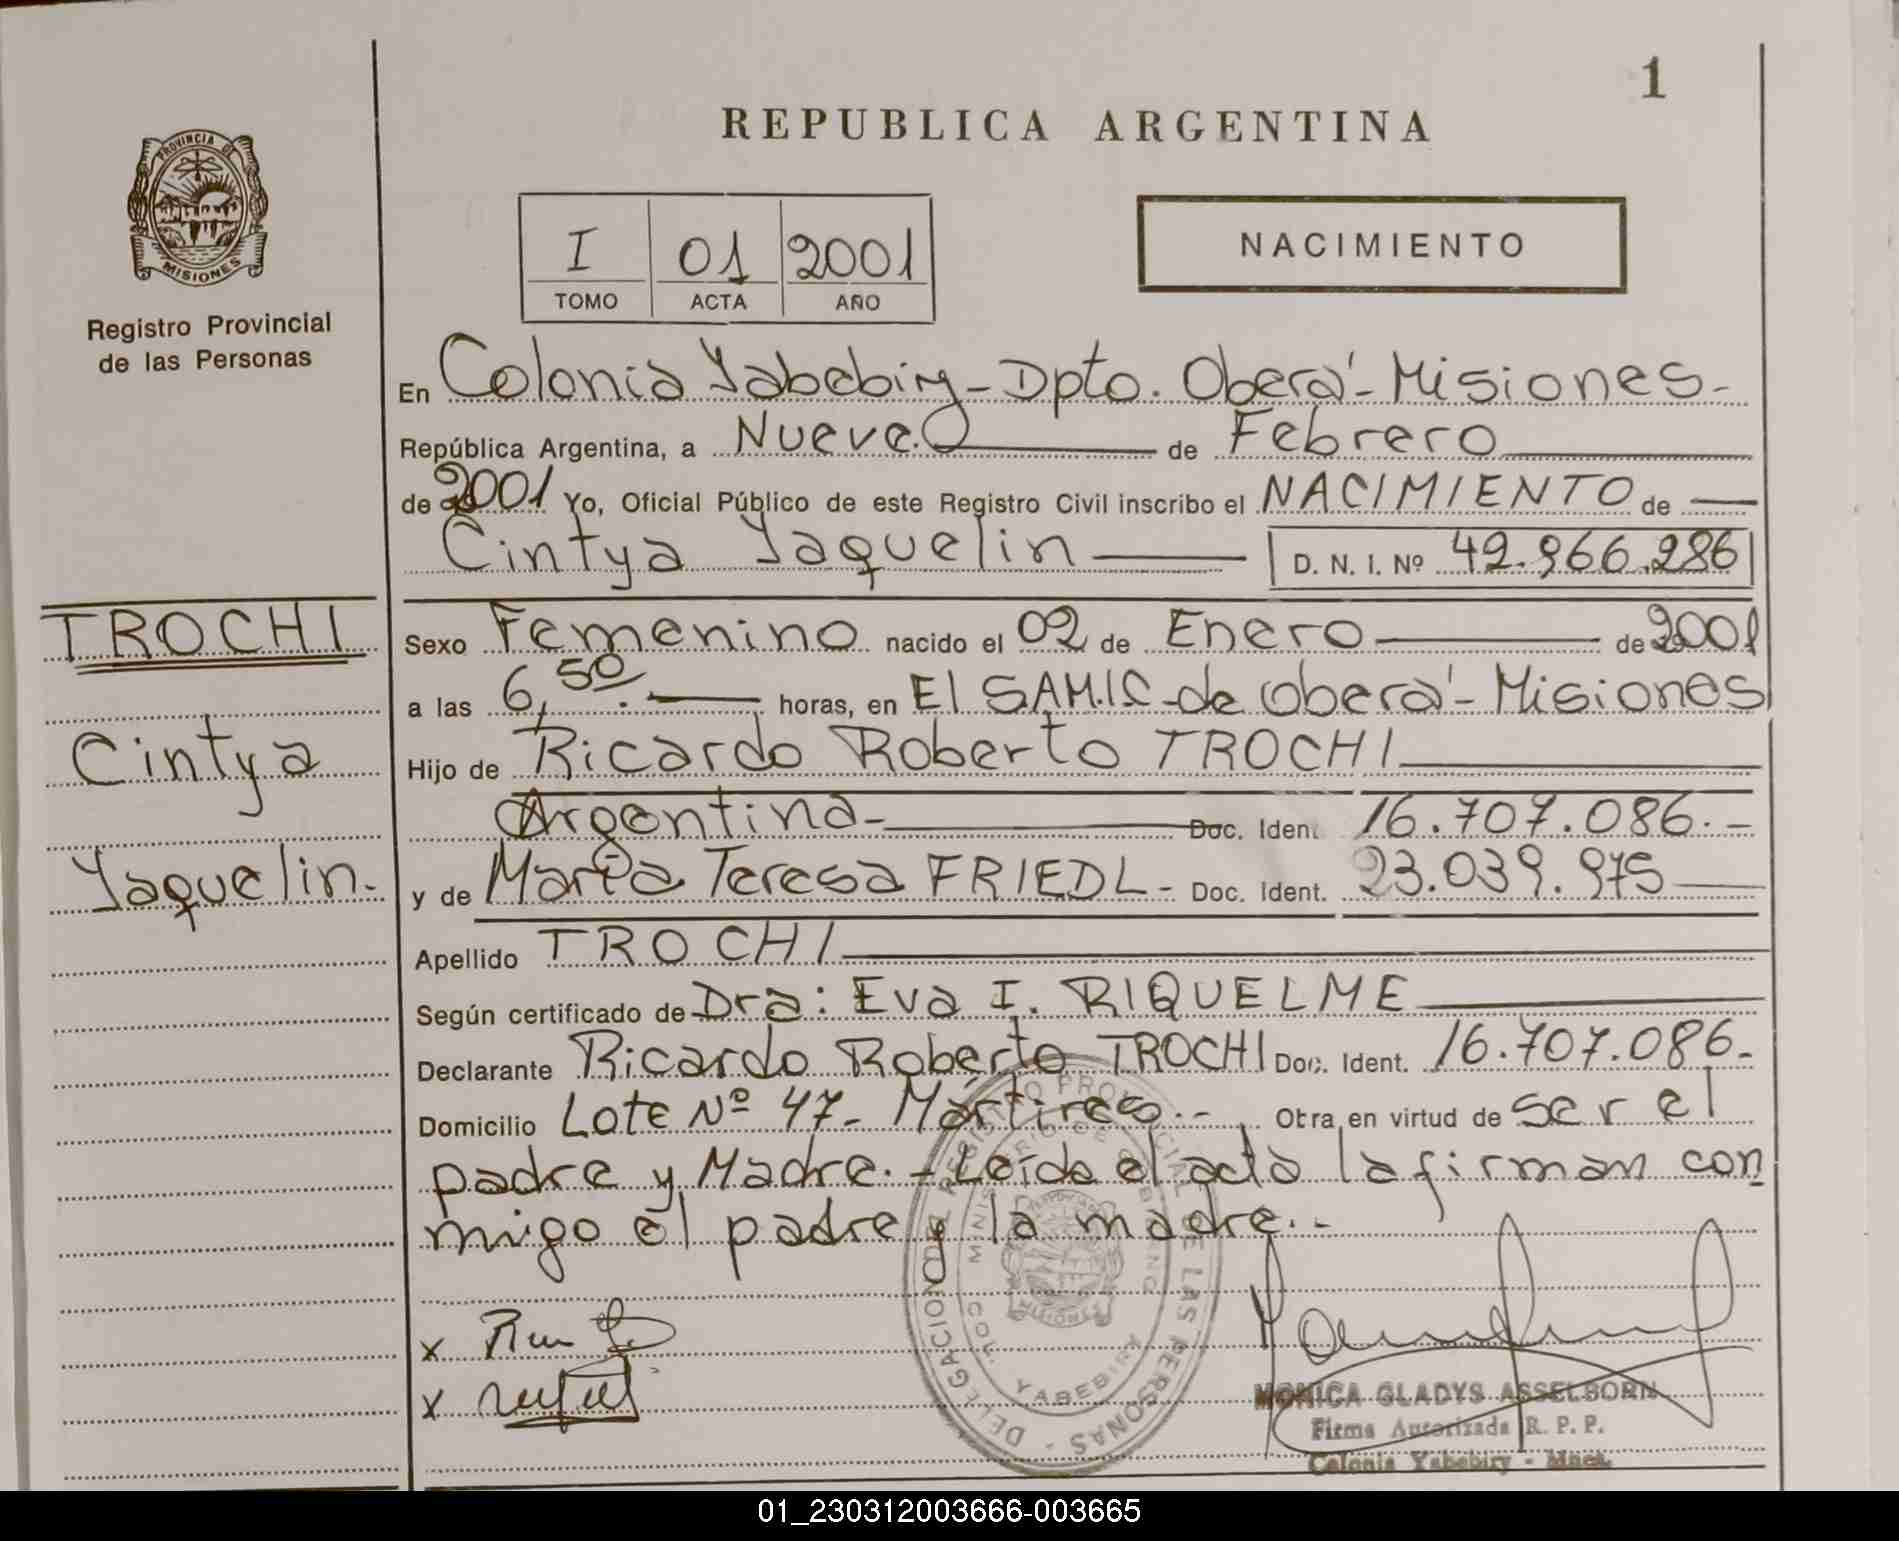 1
REPUBLICA ARGENTINA
PROVINCIA DE
MISIONES
Registro Provincial
de las Personas
I 01 2001
TOMO ACTA AÑO
NACIMIENTO
En Colonia Yabebiry - Dpto. Oberá - Misiones -
República Argentina, a Nueve de Febrero
de 2001 Yo, Oficial Público de este Registro Civil inscribo el NACIMIENTO de
Cintya Yaquelin D. N. I. Nº 42.966.286
TROCHI
Cintya
Yaquelin.-
Sexo Femenino nacido el 02 de Enero de 2001
a las 6,50. horas, en El SAMIC - de Oberá - Misiones
Hijo de Ricardo Roberto TROCHI
Argentina - Doc. Iden. 16.707.086.-
y de María Teresa FRIEDL - Doc. Ident. 23.039.975
Apellido TROCHI
Según certificado de Dra: Eva I. RIQUELME
Declarante Ricardo Roberto TROCHI Doc. Ident. 16.707.086.-
Domicilio Lote Nº 47 - Mártires.- Obra en virtud de ser el
padre y Madre. - Leída el acta la firman con
migo el padre y la madre.-
x
x
DELEGACION DEL REGISTRO PROVINCIAL DE LAS PERSONAS -
MINISTERIO DE GOBIERNO
MISIONES
COL. YABEBIRY
MONICA GLADYS ASSELBORN
Firma Autorizada R. P. P.
Colonia Yabebiry - Mnes.
01_230312003666-003665